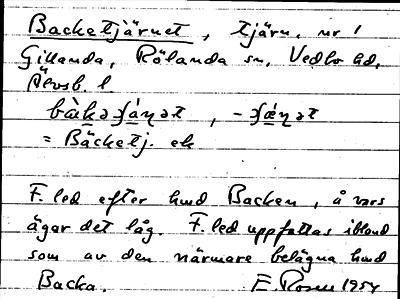 Backetjärnet, tjärn, nr 1
Gillanda, Rölanda sn, Vedbo hd,
Älvsb. l.
= Bäcketj. ek
F. led efter hmd Backen, å vars
ägor det låg. F. led uppfattas ibland
som av den närmare belägna hmd
Backa. E. Rosell 1954